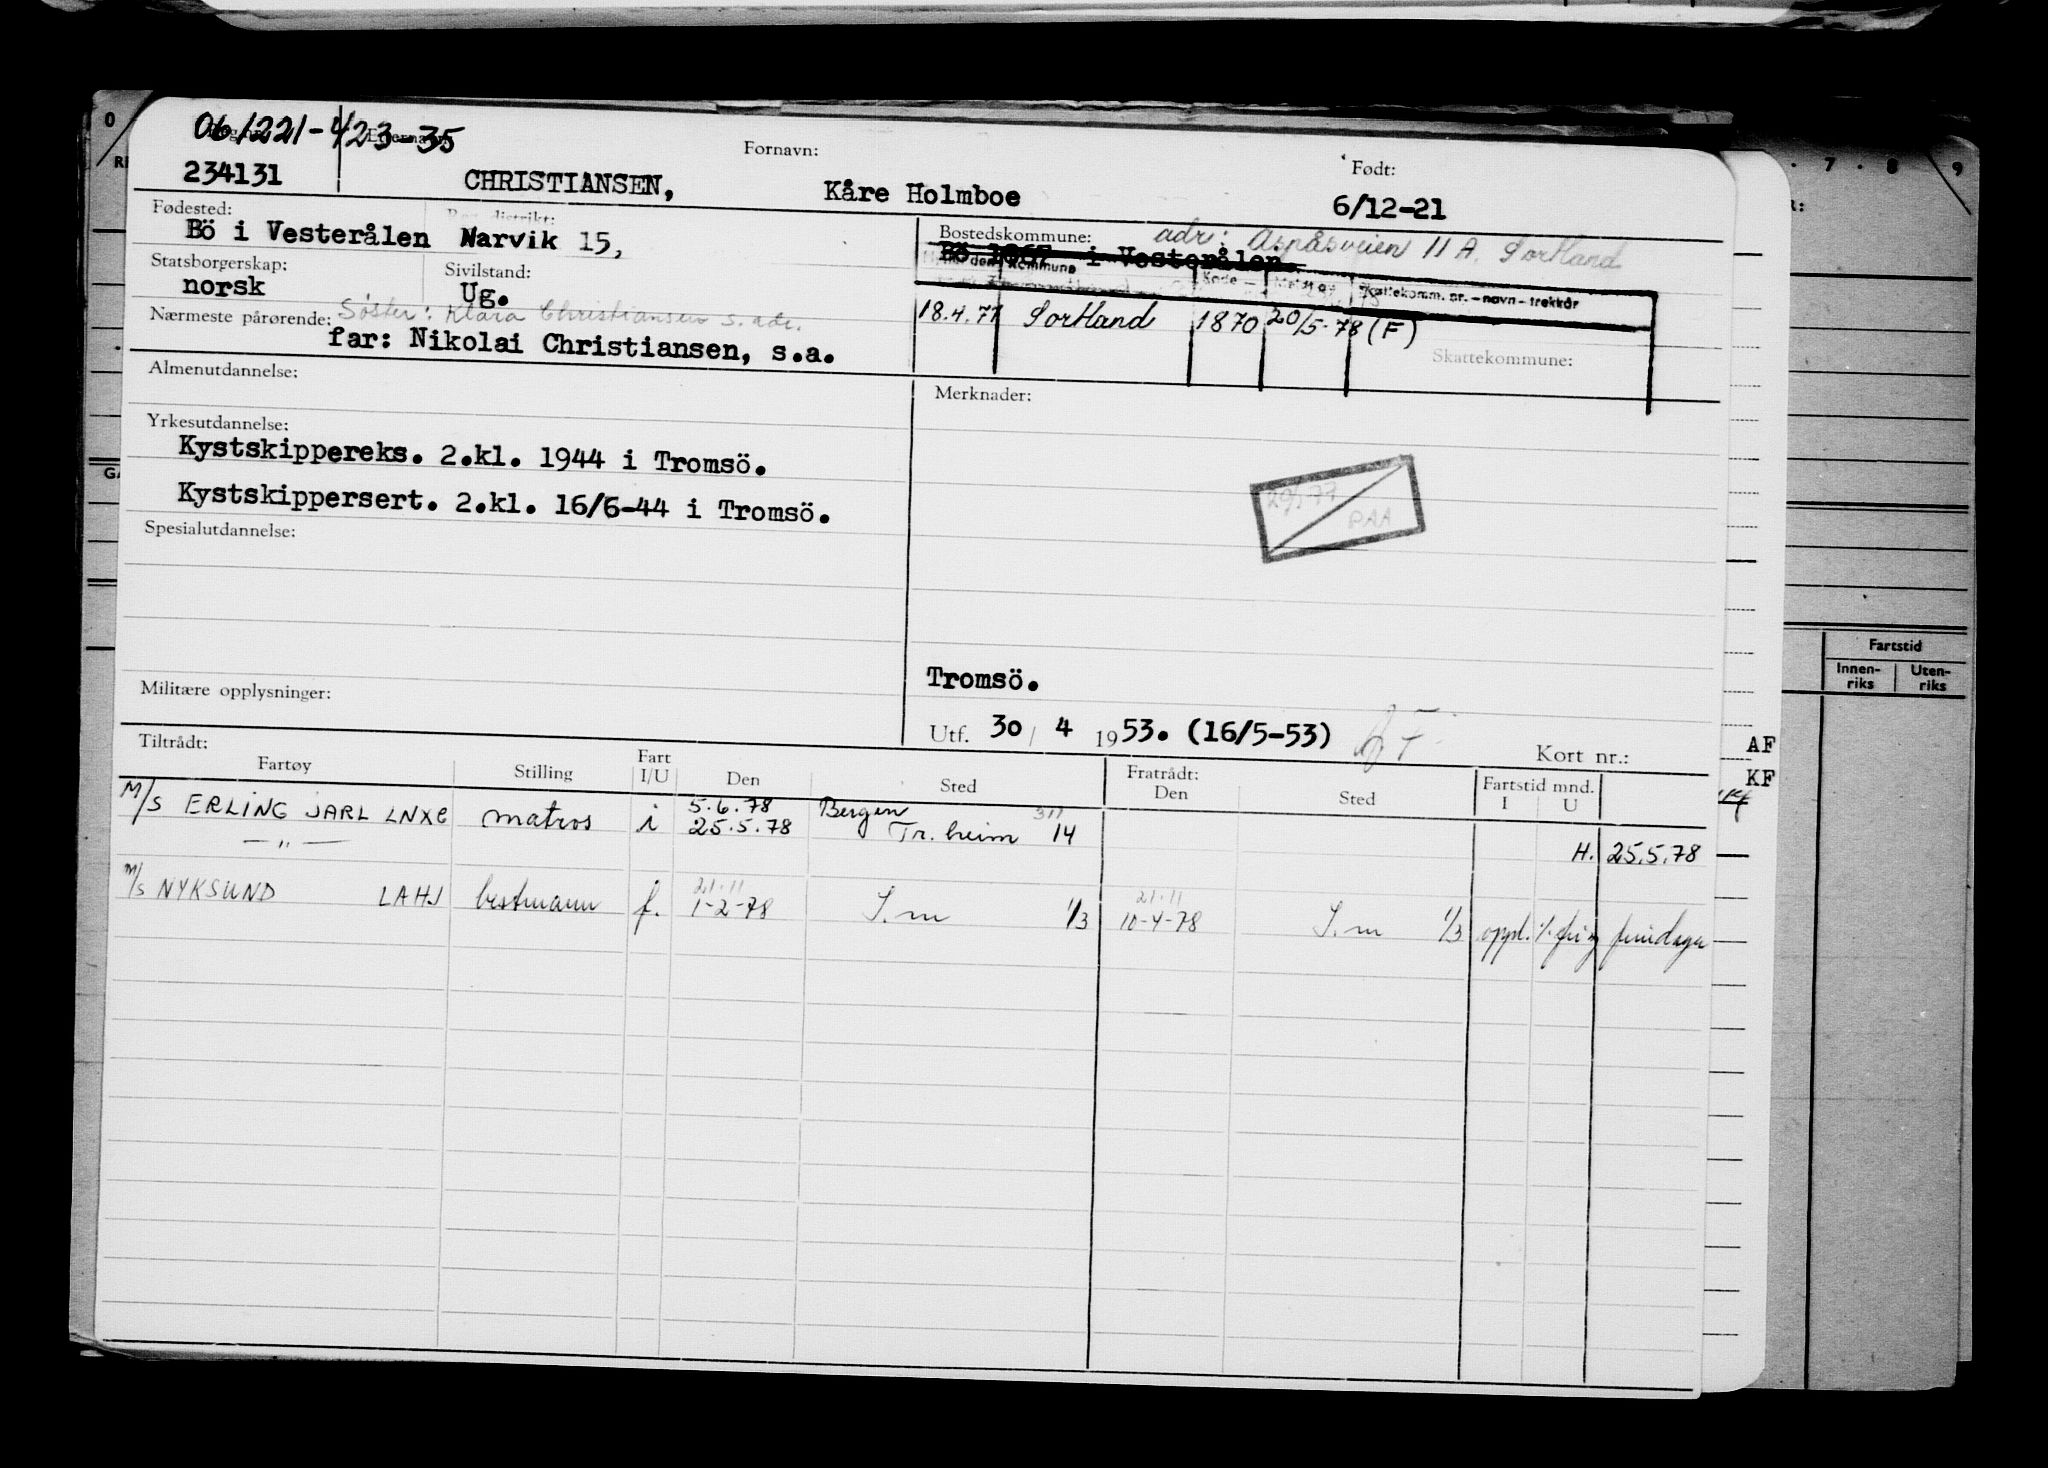 061221-423-35
Fornavn: Født:
234131 CHRISTIANSEN, Kåre Holmboe 6/12-21
Fødested: Bostedskommune: adr: Aspåsveien 11 A. Sortland
Bö i Vesterålen Narvik 15, Bö 1867 i Vesterålen.
Statsborgerskap: Sivilstand:
norsk Ug.
kommune Kode Skattekomm. nr. – navn – trekkår
Nærmeste pårørende: Søster: Klara Christiansen s. adr. 18.4.77 Sortland 1870 20/5-78 (F)
far: Nikolai Christiansen, s.a. Skattekommune:
Almenutdannelse: Merknader:
Yrkesutdannelse:
Kystskippereks. 2.kl. 1944 i Tromsö.
Kystskippersert. 2.kl. 16/6-44 i Tromsö.
PAA
Spesialutdannelse:
Tromsö.
Militære opplysninger:
Utf. 30/4 1953. (16/5-53)
Tiltrådt: Kort nr.:
Fartøy Stilling Fart I/U Den Sted Fratrådt: Den Sted Fartstid mnd. I U
M/S ERLING JARL LNXC matros i 5.6.78 Bergen
— " — 25.5.78 Tr.heim 14 H. 25.5.78
M/S NYKSUND LAHJ bestmann f. 21.11 1-2-78 S.m 1/3 21.11 10-4-78 S.m 1/3 oppl.
0
7 8 9
Fartstid
Innen-riks Uten-riks
AF
KF